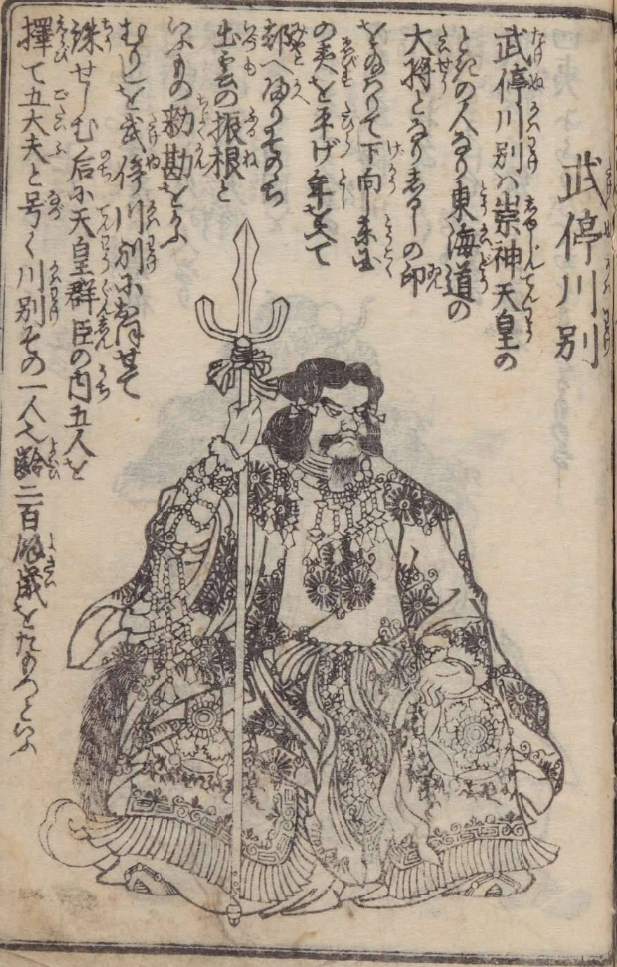 武停川別
武停川別ハ崇神天皇の
ときの人なり東海道の
大将となりしるしの印
をたまハりて下向し東国
の夷を平げ年を経て
都へ帰りそのゝち
出雲の振根と
いふもの勅勘をかふ
むりしを武停川別におほせて
誅せしむ后に天皇群臣の内五人を
擇て五大夫と号く川別その一人也齢二百餘歳をたもつといふ